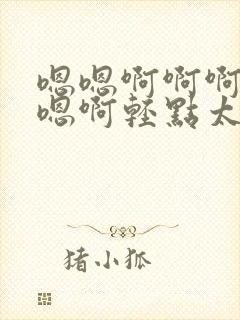 嗯嗯啊啊啊
嗯啊轻點太
猪小狐